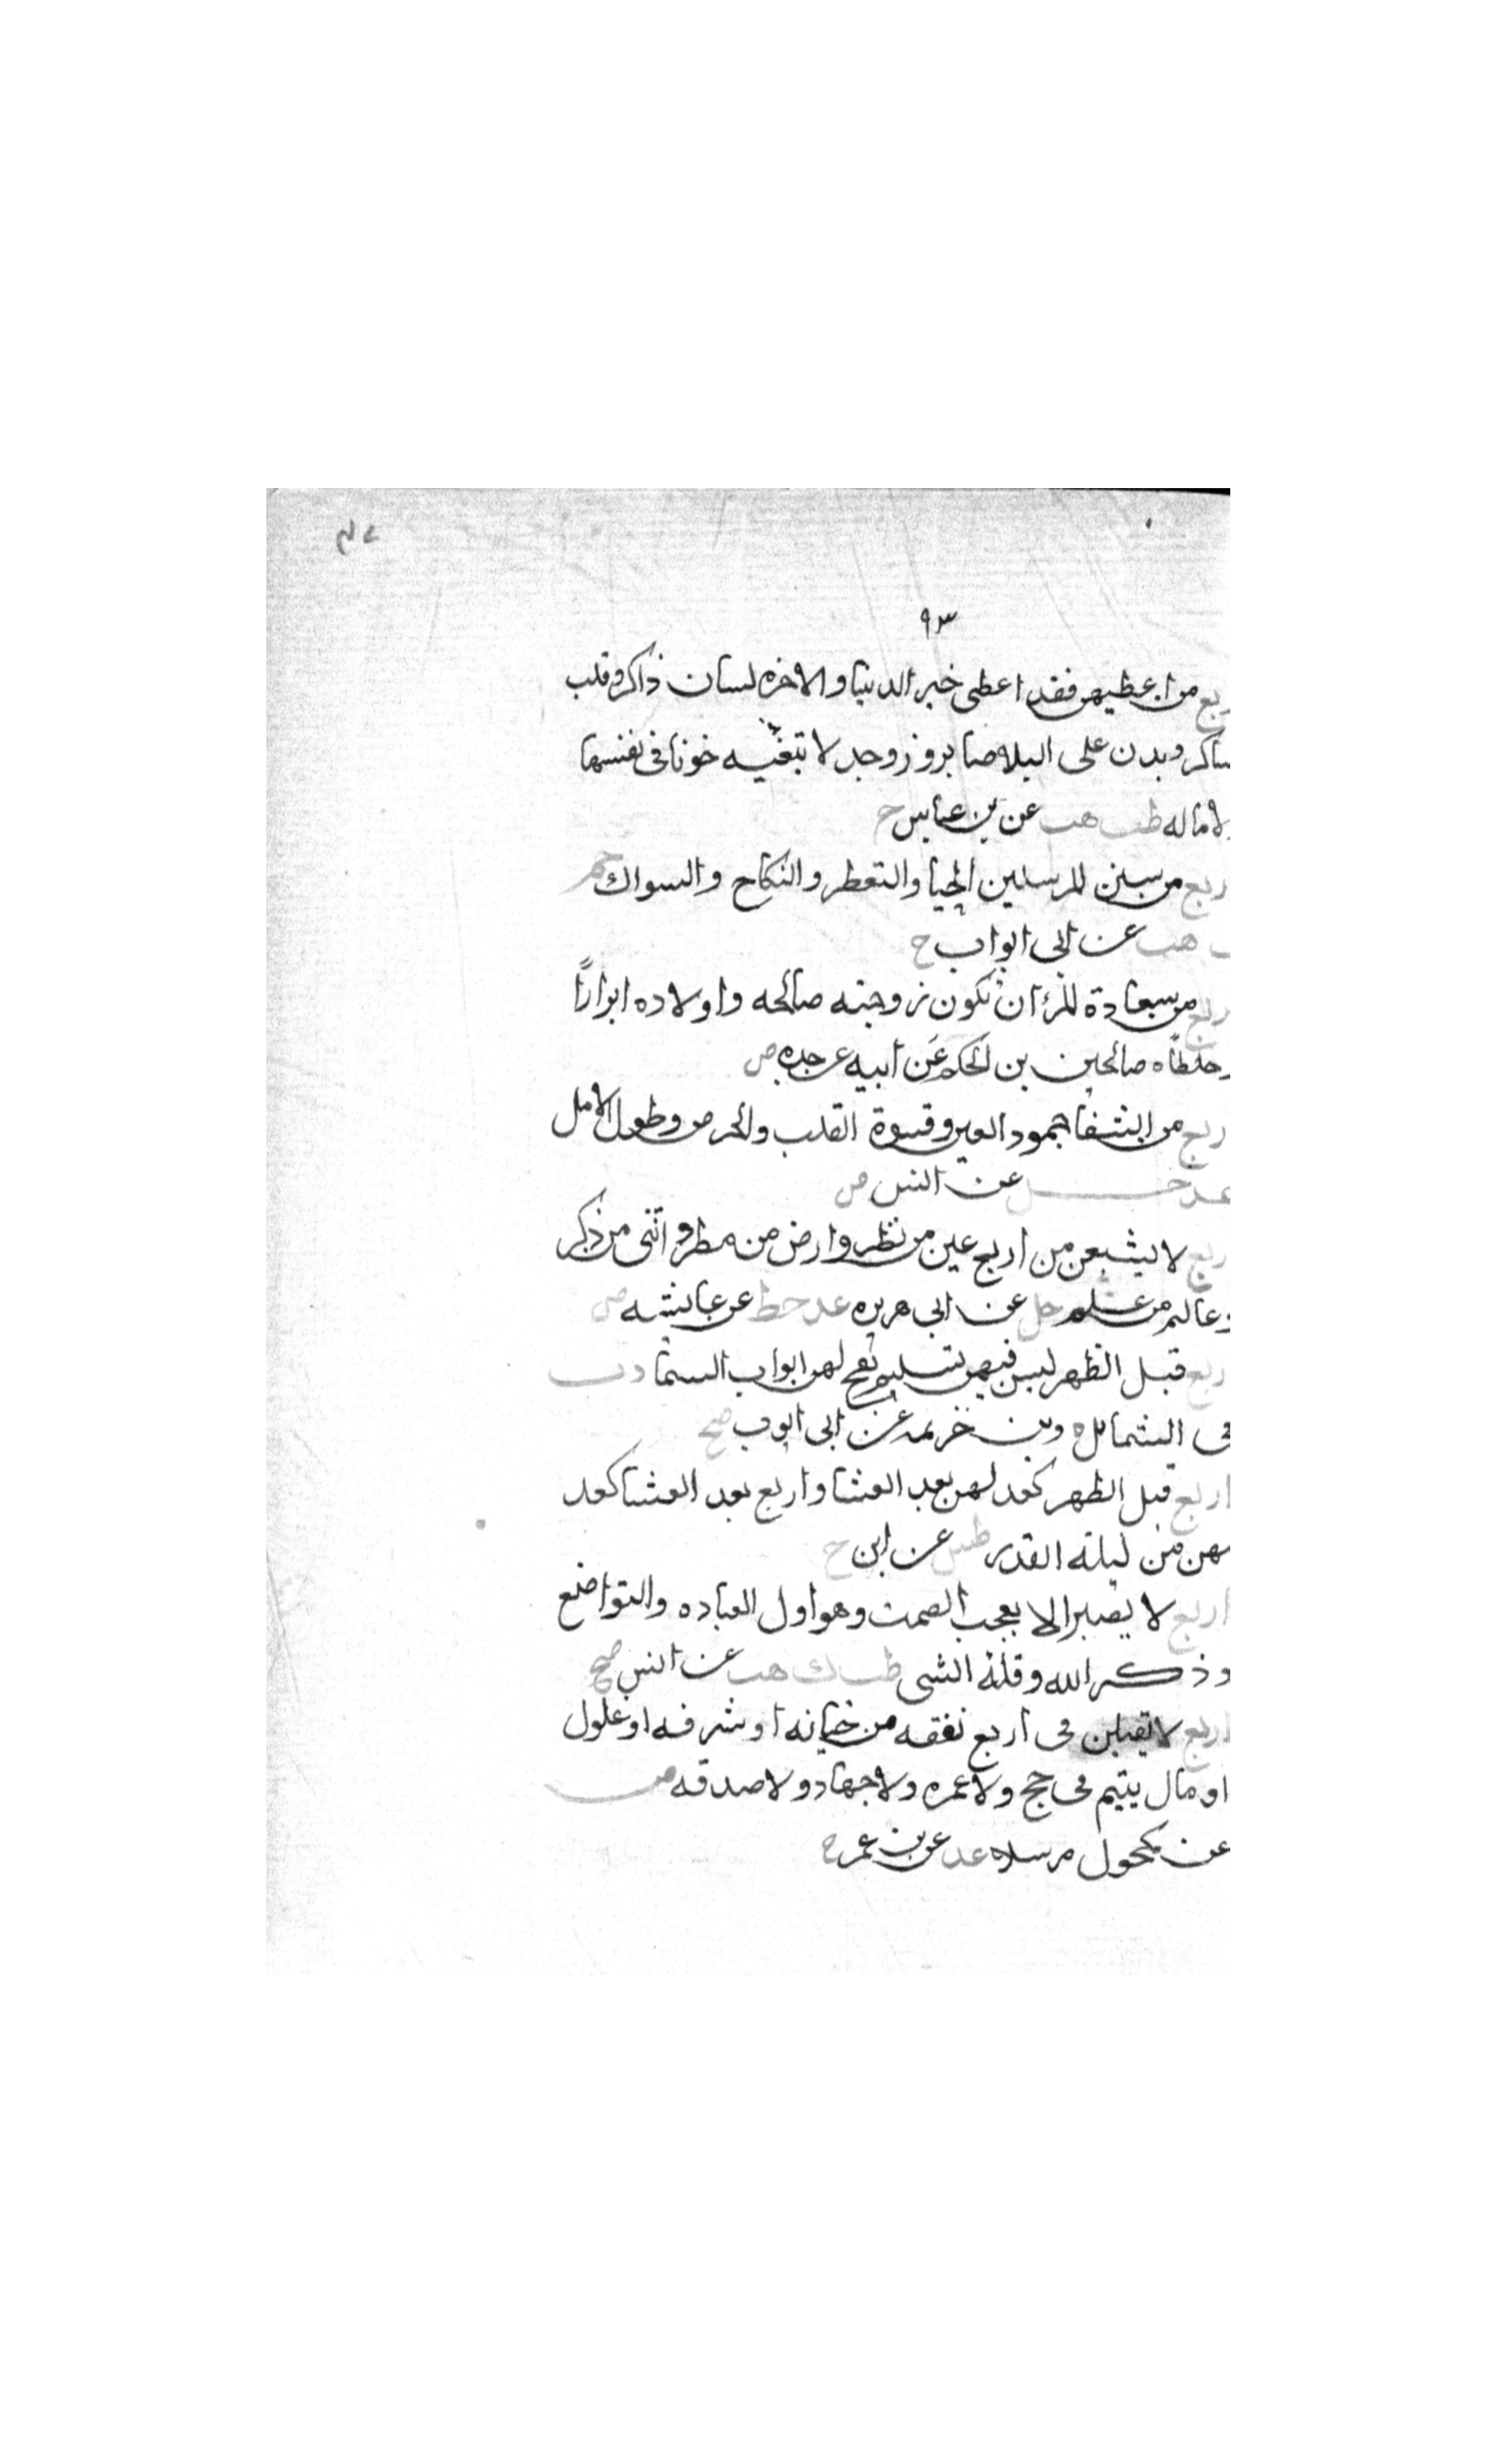 ٩٣
ربع من اعطيهن فقد اعطى خير الدنيا والاخره لسان ذاكر وقلب
شاكر وبدن على البلاء صابر وزوجه لا تبغيه خونا فى نفسها
لا ماله طب هب عن بن عباس ح
ربع من سنن المرسلين الحيا والتعطر والنكاح والسواك حم
هب عن ابى ايواب ح
ربع من سعادة المرء ان تكون زوجته صالحه واولاده ابرارًا
وخلطاه صالحين بن الحكم عن ابيه عن جده ض
ربع من الشقا جمود العين وقسوة القلب والحرص وطول الامل
عد حل عن انس ض
ربع لا يشبعن من اربع عين من نظر وارض من مطر وانثى من ذكر
وعالم من علم حل عن ابى هريره عد خط عن عايشه ض
ربع قبل الظهر ليس فيهن تسليم تفتح لهن ابواب السما د ت
فى الشمائل ه وبن خزيمه عن ابى ايوب صح
اربع قبل الظهر كعد لهن بعد العشا واربع بعد العشا كعد
لهن من ليلة القدر طس عن انس ح
اربع لا يصبر الا بعجب الصمت وهو اول العباده والتواضع
وذكر الله وقلة الشى طب ك هب عن انس صح
اربع لا تقبلن فى اربع نفقه من خيانه او سرقه او غلول
او مال يتيم فى حج ولا عمره ولا جهاد ولا صدقه ص
عن مكحول مرسلا عد عن بن عمر ح